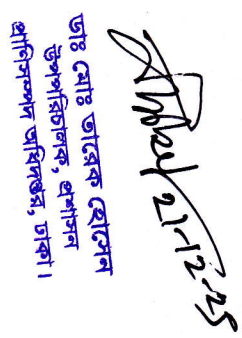 21-12-25
ডাঃ মোঃ তারেক হোসেন
উপপরিচালক, প্রশাসন
প্রাণিসম্পদ অধিদপ্তর, ঢাকা।